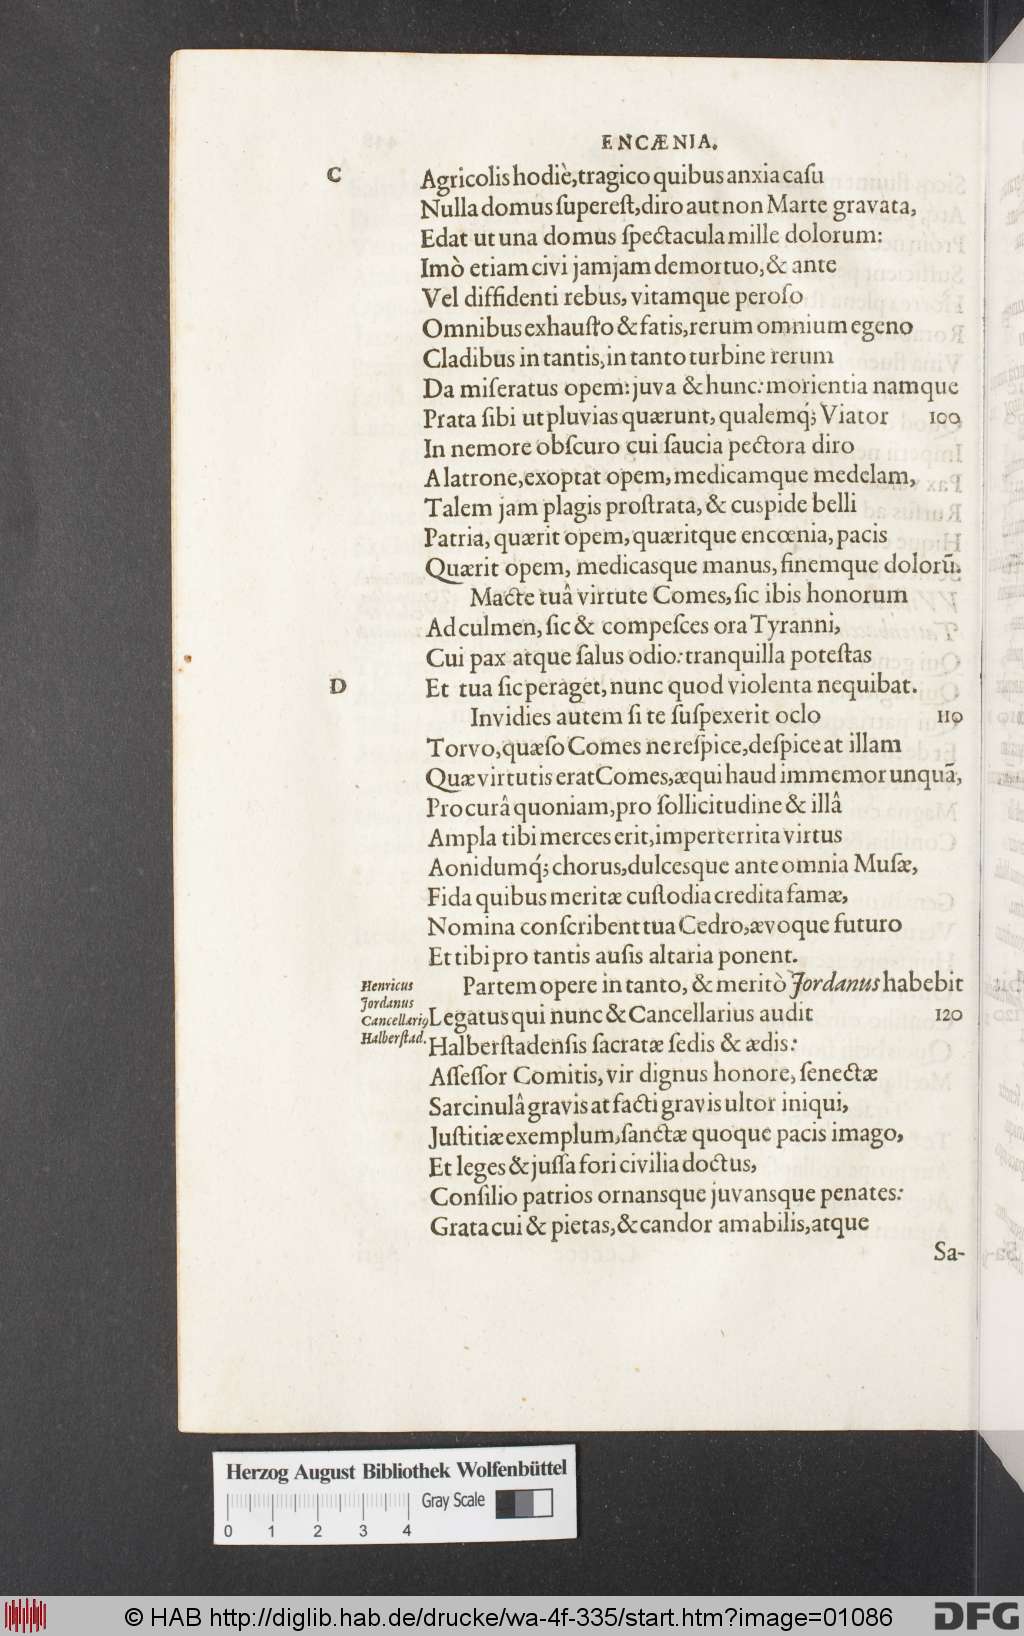 ENCÆNIA.
C Agricolis hodiè, tragico quibus anxia caſu
Nulla domus ſupereſt, diro aut non Marte gravata,
Edat ut una domus ſpectacula mille dolorum:
Imò etiam civi jamjam demortuo, & ante
Vel diffidenti rebus, vitamque peroſo
Omnibus exhauſto & fatis, rerum omnium egeno
Cladibus in tantis, in tanto turbine rerum
Da miſeratus opem: juva & hunc: morientia namque
Prata ſibi ut pluvias quærunt, qualemq́; Viator 100
In nemore obſcuro cui ſaucia pectora diro
A latrone, exoptat opem, medicamque medelam,
Talem jam plagis proſtrata, & cuspide belli
Patria, quærit opem, quæritque encœnia, pacis
Quærit opem, medicasque manus, finemque dolorũ.
Macte tuâ virtute Comes, ſic ibis honorum
Ad culmen, ſic & compeſces ora Tyranni,
Cui pax atque ſalus odio: tranquilla poteſtas
D Et tua ſic peraget, nunc quod violenta nequibat.
Invidies autem ſi te ſuſpexerit oclo 110
Torvo, quæſo Comes ne reſpice, deſpice at illam
Quæ virtutis erat Comes, æqui haud immemor unquã,
Pro curâ quoniam, pro ſollicitudine & illâ
Ampla tibi merces erit, imperterrita virtus
Aonidumq́; chorus, dulcesque ante omnia Muſæ,
Fida quibus meritæ cuſtodia credita famæ,
Nomina conſcribent tua Cedro, ævoque futuro
Et tibi pro tantis auſis altaria ponent.
Henricus
Jordanus
Cancellariꝰ
Halberſtad.
Partem opere in tanto, & meritò Jordanus habebit
Legatus qui nunc & Cancellarius audit 120
Halberſtadenſis ſacratæ ſedis & ædis:
Aſſeſſor Comitis, vir dignus honore, ſenectæ
Sarcinulâ gravis at facti gravis ultor iniqui,
Juſtitiæ exemplum, ſanctæ quoque pacis imago,
Et leges & juſſa fori civilia doctus,
Conſilio patrios ornansque juvansque penates:
Grata cui & pietas, & candor amabilis, atque
Sa-
Herzog August Bibliothek Wolfenbüttel
Gray Scale
0 1 2 3 4
© HAB http://diglib.hab.de/drucke/wa-4f-335/start.htm?image=01086
DFG